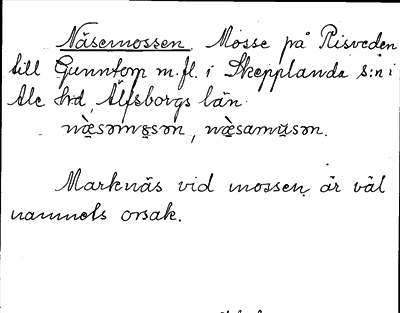 Näsemossen. Mosse på Risveden
till Gunntorp m.fl. i Skepplanda s:n i
Ale hd, Älfsborgs län.
næ̀səmo̱sən, næ̀samu̱sən.
Marknäs vid mossen är väl
namnets orsak.